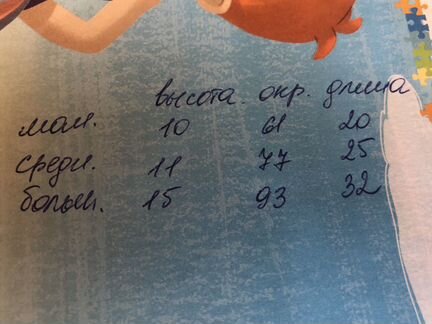 высота. окр. длина
мал. 10 61 20
средн. 11 77 25
больш. 15 93 32